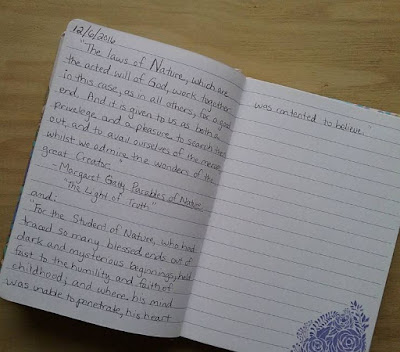 12/6/2016
"The laws of Nature, which are
the acted will of God, work together
in this case, as in all others, for a good
end. And it is given to us as both a
privelege and a pleasure to search them
out, and to avail ourselves of the mercies
whilst we admire the wonders of the
great Creator."
- Margaret Gatty Parables of Nature
"The Light of Truth"
and:
"For the Student of Nature, who had
traced so many blessed ends out of
dark and mysterious beginnings, held
fast to the humility and faith of
childhood; and where his mind
was unable to penetrate, his heart
was contented to believe."